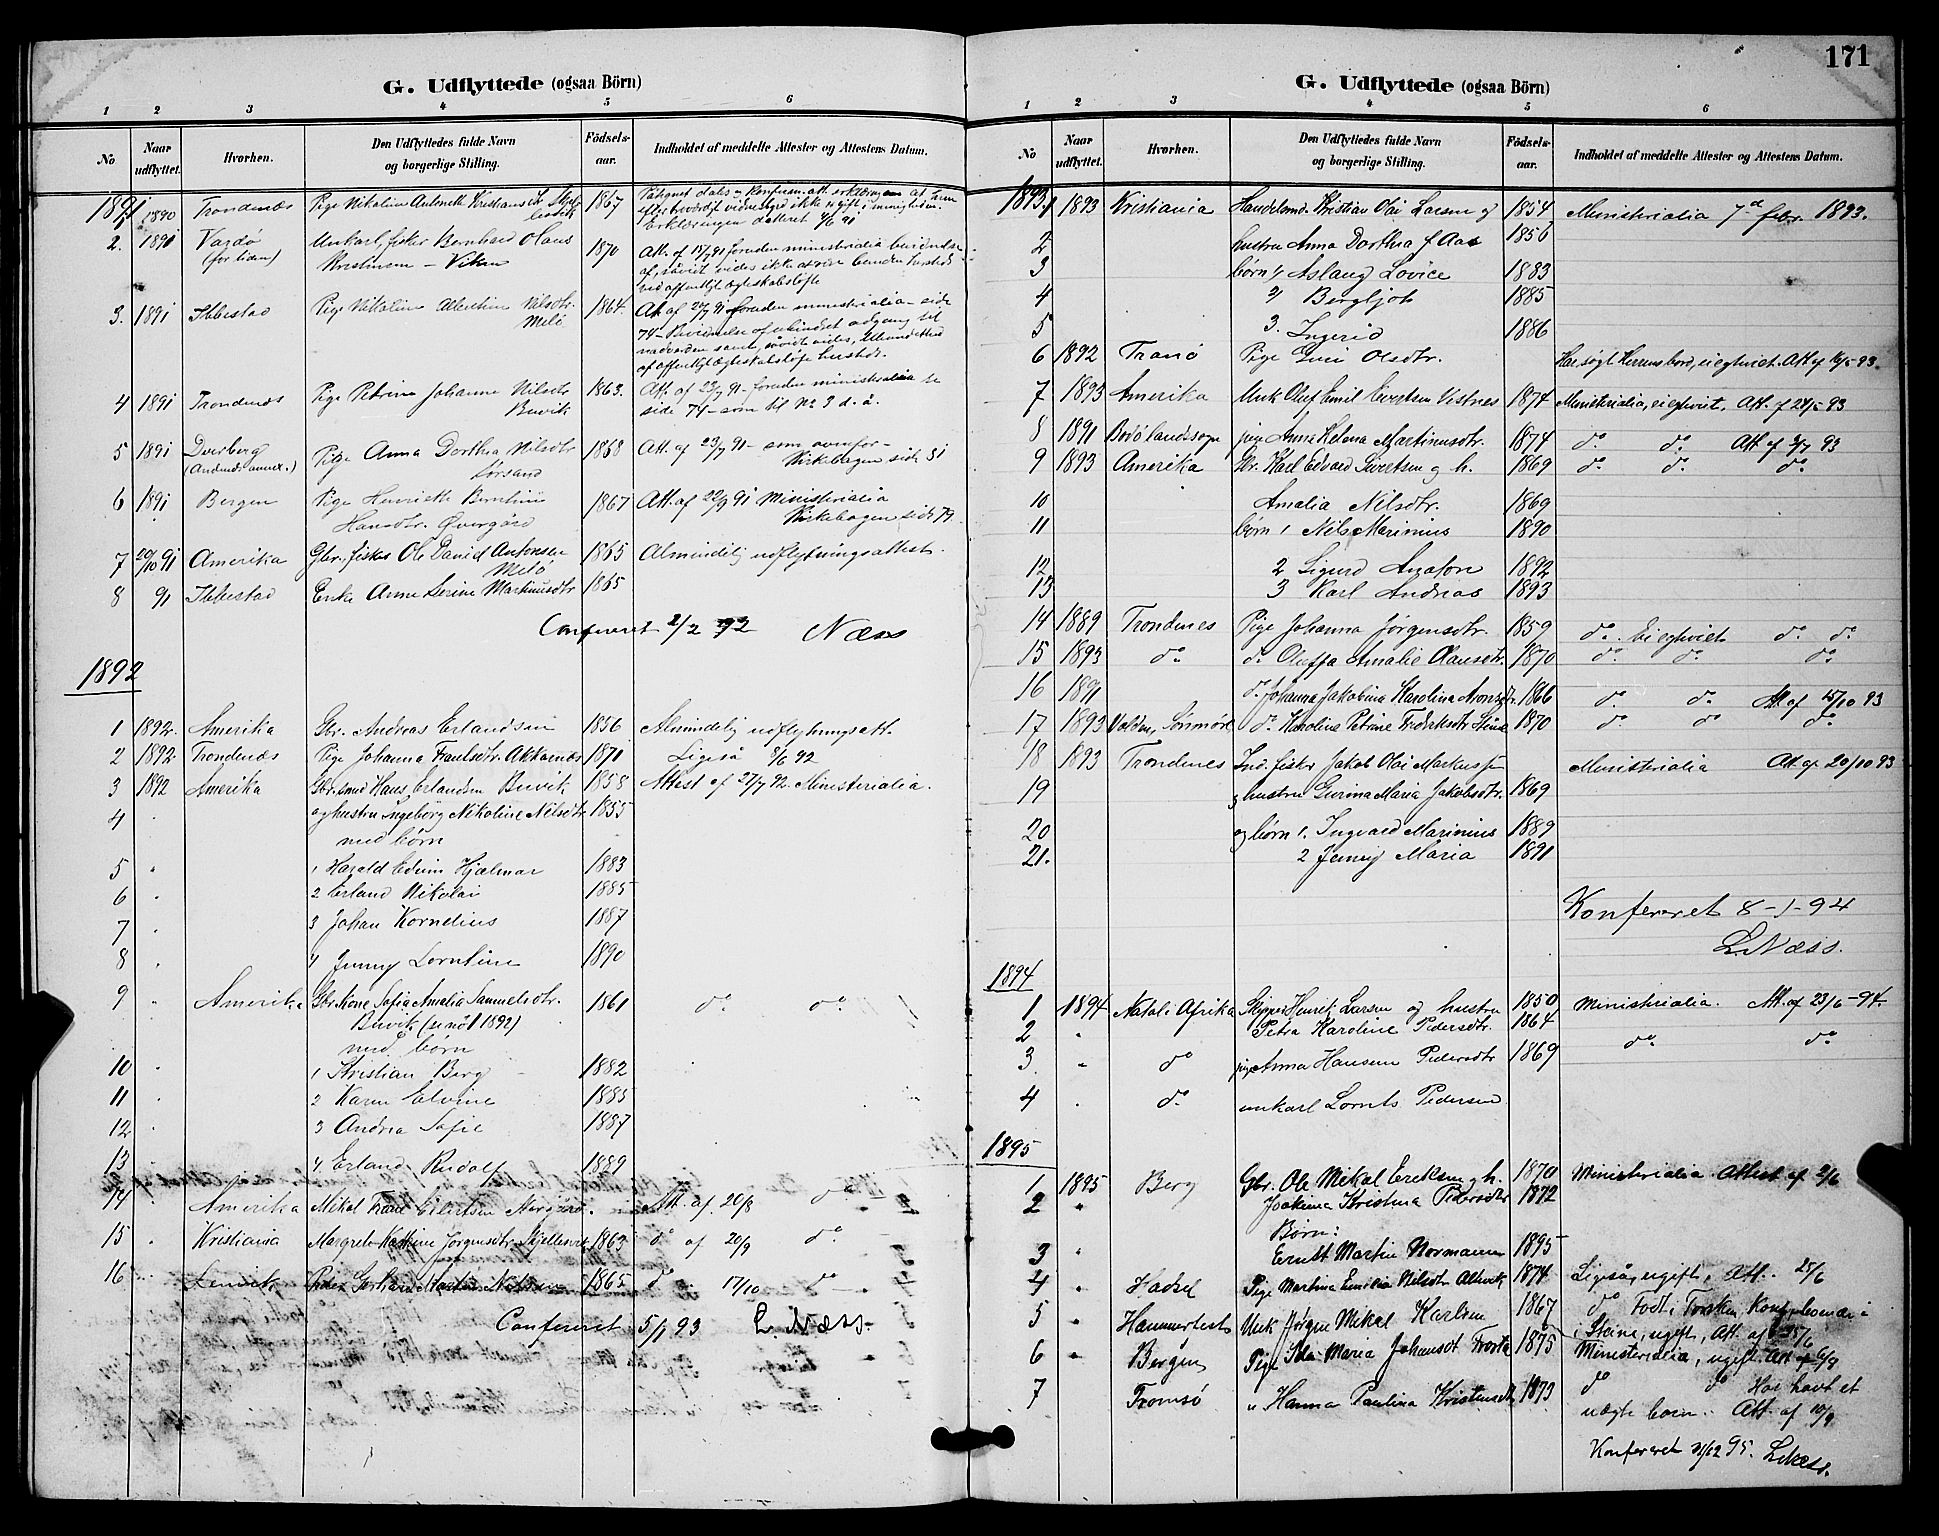 G. Udflyttede (ogsaa Börn)
1 2 3 4 5 6
No
Naar udflyttet.
Hvorhen.
Den Udflyttedes fulde Navn og borgerlige Stilling.
Födsels-aar.
Indholdet af meddelte Attester og Attestens Datum.
1891
1 1890 Trondenæs Pige Nikoline Antonette Kristiansdtr 1867
Erklæringen dateret
2. 1891 Vardø Unkarl, fisker Bernhard Olaus 1870 Att. af 15/7 91 foruden ministerialia
(for tiden) Kristiansen - Viken
3. 1891 Ibbestad Pige Nikoline Albertine Nilsdtr. 1864. Att. af 27/7 91 foruden ministerialia - side
Melö 74 -
af offentligt ægteskabsløfte hersteds.
4 1891 Trondenæs Pige Petrine Johanne Nilsdtr 1863. Att. af 23/7 91 - foruden ministerialia se
Buvik side 74 - som til No 3 d. å.
5 1891 Dverberg Pige Anna Dorthea Nilsdtr 1868 Att. af 23/7 91 - som ovenfor -
(Andenes annex.) Sörsand Kirkebogen side 51
6 1891 Bergen Pige Henriette Bernhine 1867 Att. af 22/9 91 Ministerialia
Hansdtr. Øvergård Kirkebogen side 79.
7 20/10 91 Amerika Gbr., fisker Ole David Antonsen 1865 Almindelig udflytningsattest.
Melö
8 91 Ibbestad Enke Anne Serine Martinusdtr 1865
Confereret 2/2 92 Næss
1892
1 1892. Amerika Gbr. Andreas Erlandsen 1856 Almindelig udflytningsatt.
2 1892. Trondenæs Pige Johanna Paulsdtr. Akkarnæs 1871 Ligeså 8/6 92
3 1892 Amerika Gbr. smed Hans Erlandsen Buvik 1858 Attest af 27/7 92. Ministerialia.
4 og hustru Ingeborg Nikoline Nilsdtr 1855
med børn
5 1 Harald Edvin Hjalmar 1883
6 2 Erland Nikolai 1885
7 3 Johan Kornelius 1887
8 4 Jenny Lorntine 1890
9 Amerika Gbr. kone Sofie Amalia Samuelsdtr. 1861 do do
Buvik (se no 1 1892)
med børn
10 1 Kristian Berg 1882
11 2 Karen Elvine 1885
12 3 Andrea Sofie 1887
13 4. Erland Rudolf 1889
14 Amerika Mikal Eilertsen Norgård. Att. af 20/8 do
15 Kristiania Margrete Katrine Jørgensdtr. 1863 do af 20/9 do
16 Lenvik Peder Gerhard Martin Nilsen 1865 do 17/10 do
Confereret 5/1 93 L. Næss.
171
G. Udflyttede (ogsaa Börn)
1 2 3 4 5 6
No
Naar udflyttet.
Hvorhen.
Den Udflyttedes fulde Navn og borgerlige Stilling.
Födsels-aar.
Indholdet af meddelte Attester og Attestens Datum.
1893.
1 1893 Kristiania Handelsmd. Kristian Olai Larsen og 1854 Ministerialia 7de febr. 1893.
2 hustru Anna Dorthea f. Aas 1856
3 børn 1/ Aslaug Lovice 1883
4 2/ Bergljot 1885
5 3. Ingerid 1886
6 1892 Tranø Pige Guri Olsdtr. Har søgt Herrens bord, ei egtviet. Att. af 16/5 93.
7 1893 Amerika Unk. Oluf Emil Evertsen Vestnes 1874 Ministerialia, ei egtviet. Att. af 24/5 93
8 1891 Bodø landssogn pige Anna Helena Martinusdtr. 1874 do do Att. af 3/7 93
9 1893 Amerika Gbr. Karl Edvard Sivertsen og h. 1869 do do do
10 Amalia Nilsdtr. 1869
11 børn 1 Nils Marinius 1890
12 2 Sigurd Anafon 1892
13 3 Karl Andreas 1893
14 1889 Trondenes Pige Johanna Jørgensdtr. 1859 do. Ei egtviet do do
15 1893 do do Oluffa Amalie Olausdtr. 1870 do do do
16 1891 do Johanna Jakobina Karolina Aronsdtr. 1866 do do Att. af 15/10 93
17 1893 Volden, Sönmöre do Karoline Petrine Fredriksdtr Steine 1870 do do do
18 1893 Trondenes Ind. fisker Jakob Olai Markussen Ministerialia Att. af 20/10 93
19 og hustru Gurina Maria Jakobsdtr. 1869
20 og børn 1. Ingvard Marinius 1889
21. 2 Jenny Maria 1891
Konfereret 8-1-94
L. Næss.
1894
1 1894 Natal i Afrika Henrik Larsen og hustru 1850 Ministerialia. Att. af 23/6 - 94.
2 Petra Karoline Pedersdtr. 1864
3. do pige Anna Hansene Pedersdtr 1869 do do
4 do unkarl Lornts Pedersen
1895
1 1895 Berg Gbr. Ole Mikal Eriksen og h. 1870 Ministerialia. Attest af 2/6
2 Joakima Kristina Pedersdtr 1872
Børn:
3 Ernst Martin Normann 1895
4 Hadsel Pige Martina Emilia Nilsdtr Allevik 1874 Ligeså, ugift, Att. 25/6
5 Hammerfest Unk. Jørgen Mikal Karlsen 1867 do Født i Torsken, Konf., boende i
i Steine, ugift, Att. af 25/6
6 Bergen Pige Ida Maria Johansdt Frosta 1875 Ministerialia, ugift. Att. af 6/9
7 Tromsö " Hanna Paulina Kristensdtr 1873 do do Har havt et
uægte barn. Att. af 10/9
Konfereret 31/12 95. L. Næss.